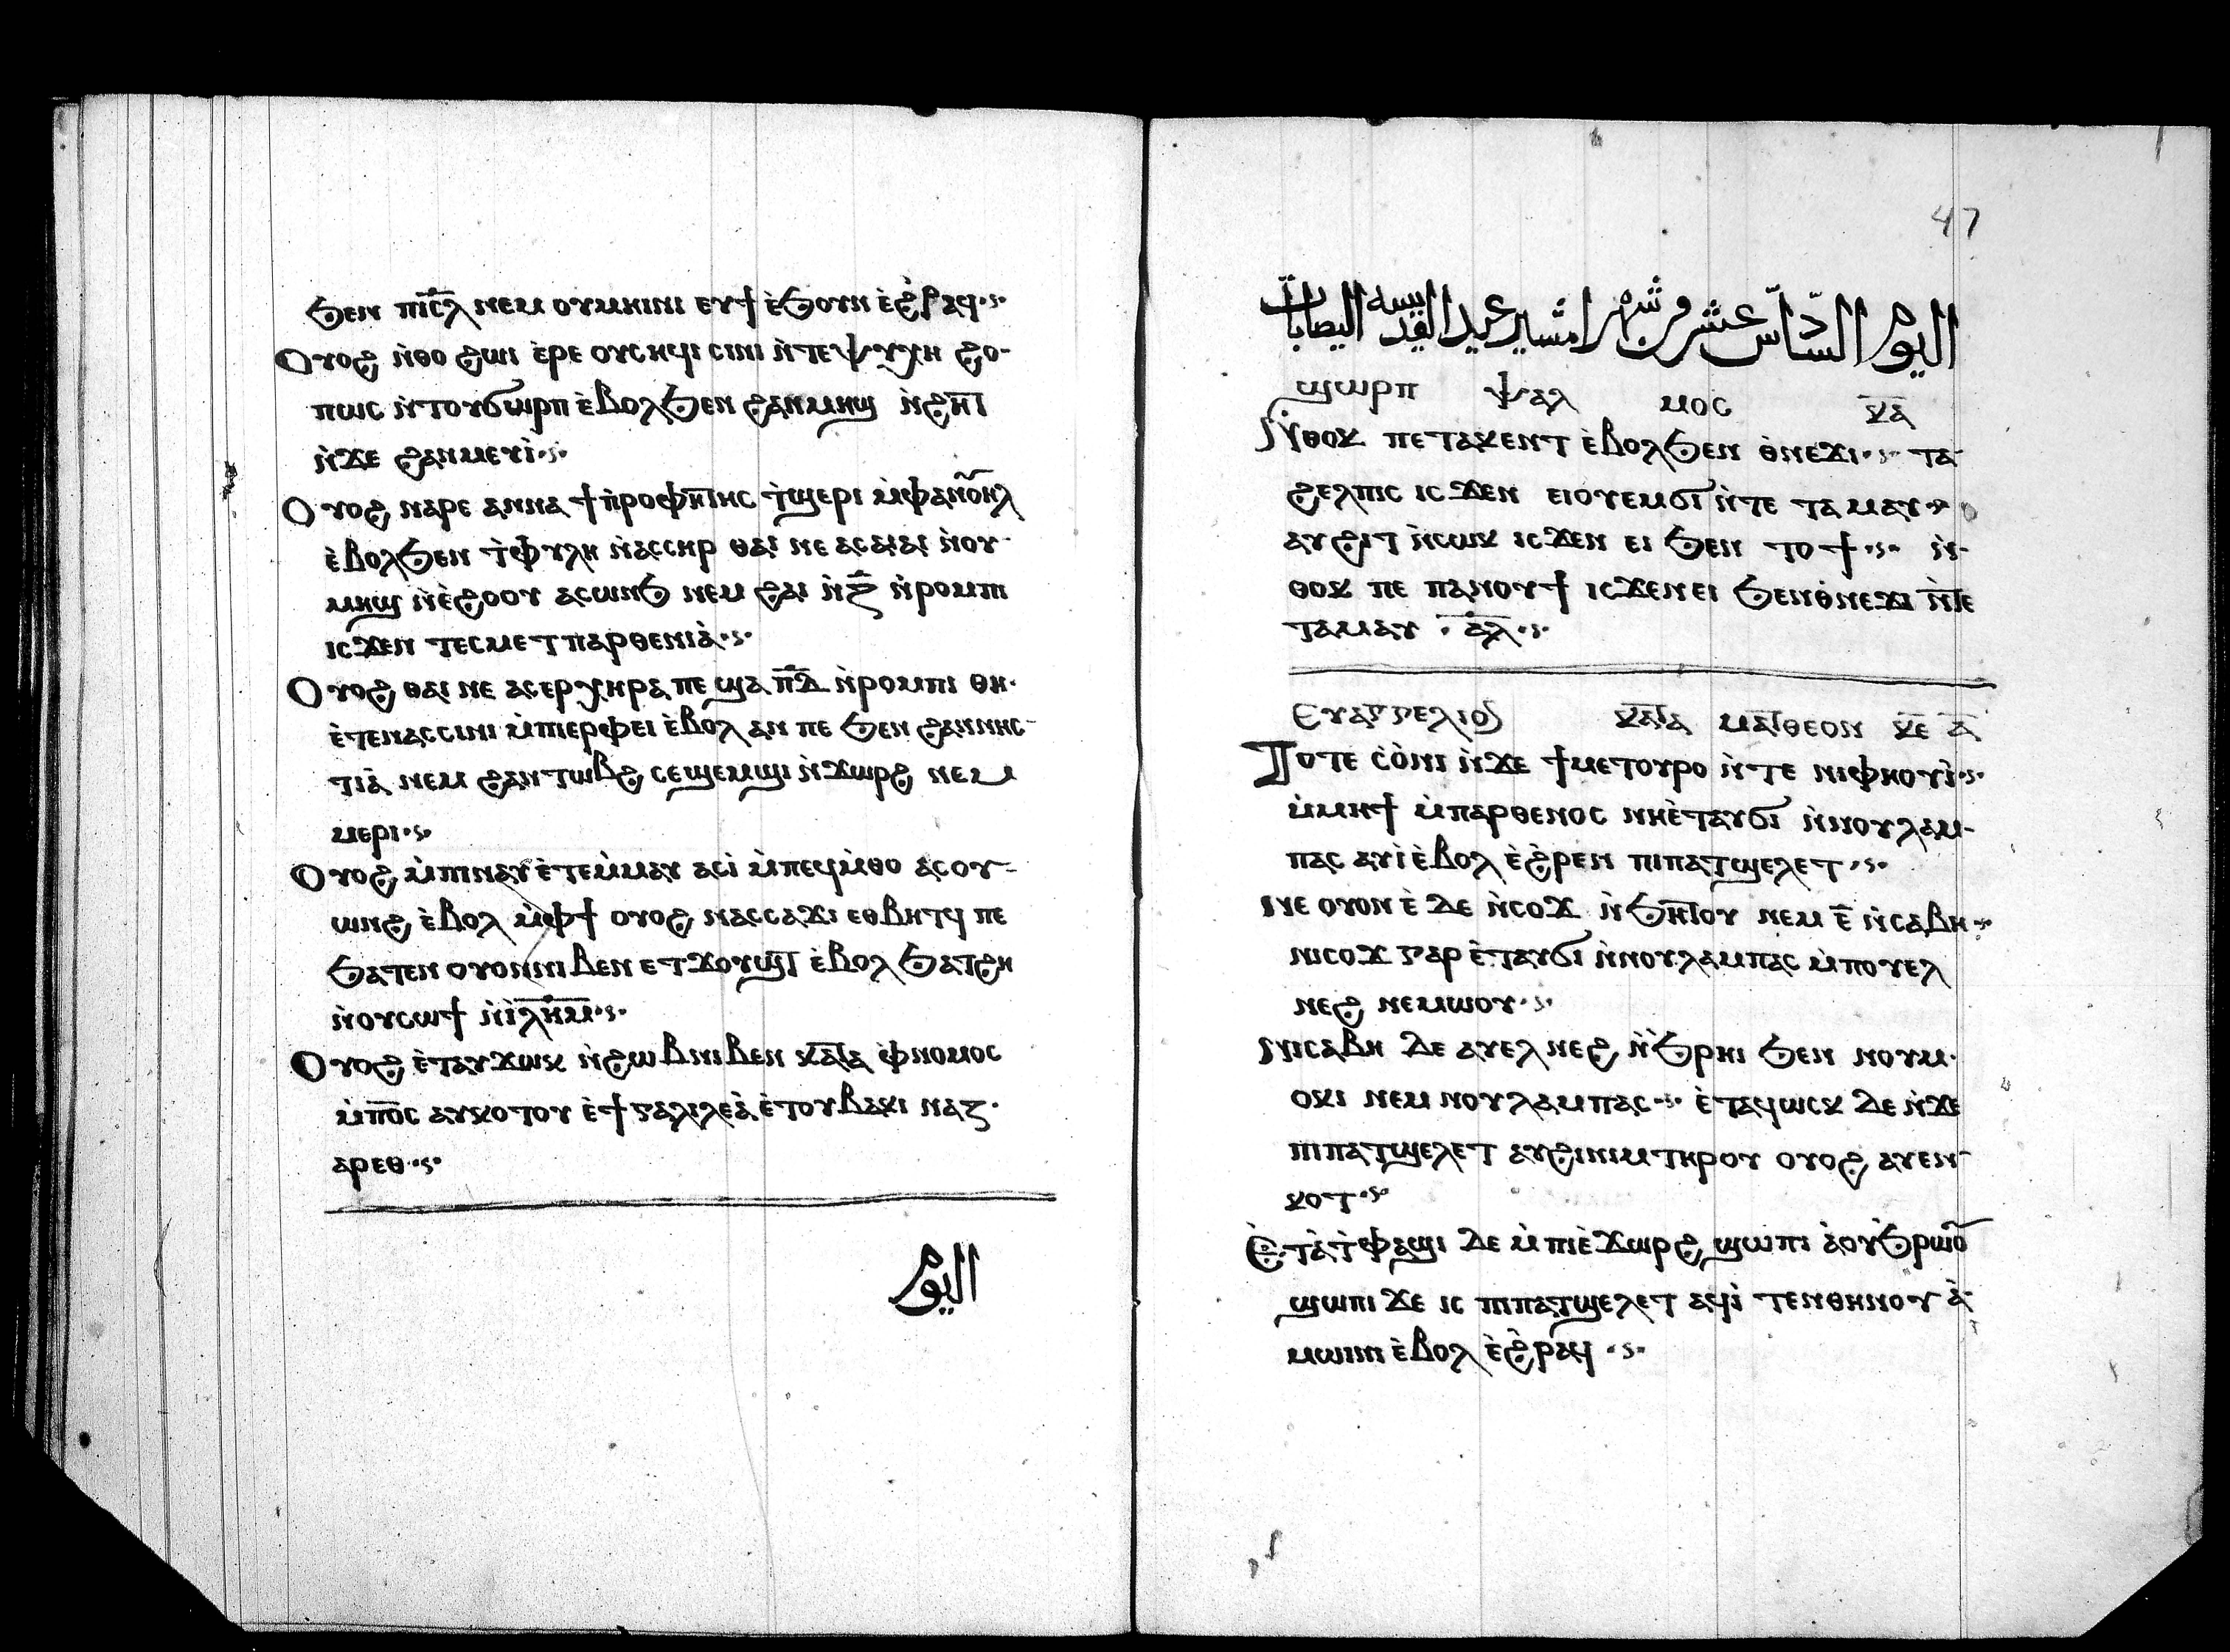 ϧⲉⲛ ⲡⲓⲥ̅ⲗ̅ ⲛⲉⲙ ⲟⲩⲙⲏⲓⲛⲓ ⲉⲩϯ ⲉ̀ϧⲟⲩⲛ ⲉ̀ϩ̀ⲣⲁϥ
Ⲟⲩⲟϩ ⲛ̀ⲑⲟ ϩⲱⲓ ⲉ̀ⲣⲉ ⲟⲩⲥⲏϥⲓ ⲥⲓⲛⲓ ⲛ̀ⲧⲉⲯⲩⲭⲏ ϩⲟ-
ⲡⲱⲥ ⲛ̀ⲧⲟⲩϭⲱⲣⲡ ⲉ̀ⲃⲟⲗϧⲉⲛ ϩⲁⲛⲙⲏϣ ⲛ̀ϩⲏⲧ
ⲛ̀ϫⲉ ϩⲁⲛⲙⲉⲩⲓ
Ⲟⲩⲟϩ ⲛⲁⲣⲉ ⲁⲛⲛⲁ ϯⲡ̀ⲣⲟⲫⲏⲧⲏⲥ ⲧ̀ϣⲉⲣⲓ ⲙ̀ⲫⲁⲛⲟⲩⲏⲗ
ⲉ̀ⲃⲟⲗϧⲉⲛ ⲧ̀ⲫⲩⲗⲏ ⲛ̀ⲁⲥⲥⲏⲣ ⲑⲁⲓ ⲛⲉ ⲁⲥⲁⲓⲁⲓ ⲛ̀ⲟⲩ-
ⲙⲏϣ ⲛ̀ⲉ̀ϩⲟⲟⲩ ⲁⲥⲱⲛϧ ⲛⲉⲙ ϩⲁⲓ ⲛ̀ⲍ̅ ⲛ̀ⲣⲟⲙⲡⲓ
ⲓⲥϫⲉⲛ ⲧⲉⲥⲙⲉⲧⲡⲁⲣⲑⲉⲛⲓⲁ̀
Ⲟⲩⲟϩ ⲑⲁⲓ ⲛⲉ ⲁⲥⲉⲣⲭⲏⲣⲁ ⲡⲉ ϣⲁ ⲡ̅ⲇ̅ ⲛ̀ⲣⲟⲙⲡⲓ ⲑⲏ-
ⲉ̀ⲧⲉⲛⲁⲥⲥⲓⲛⲓ ⲙ̀ⲡⲓⲉⲣⲫⲉⲓ ⲉ̀ⲃⲟⲗ ⲁⲛ ⲡⲉ ϧⲉⲛ ϩⲁⲛⲛⲏⲥ-
ⲧⲓⲁ̀ ⲛⲉⲙ ϩⲁⲛⲧⲱⲃϩ ⲥⲉϣⲉⲙϣⲓ ⲛ̀ϫⲱⲣϩ ⲛⲉⲙ
ⲙⲉⲣⲓ
Ⲟⲩⲟϩ ⲙ̀ⲡⲓⲛⲁⲩ ⲉ̀ⲧⲉⲙ̀ⲙⲁⲩ ⲁⲥⲓ̀ ⲙ̀ⲡⲉϥⲙ̀ⲑⲟ ⲁⲥⲟⲩ-
ⲱⲛϩ ⲉ̀ⲃⲟⲗ ⲙ̀ⲫϯ ⲟⲩⲟϩ ⲛⲁⲥⲥⲁϫⲓ ⲉⲑⲃⲏⲧϥ ⲡⲉ
ϧⲁⲧⲉⲛ ⲟⲩⲟⲛⲛⲓⲃⲉⲛ ⲉⲧϫⲟⲩϣⲧ ⲉ̀ⲃⲟⲗ ϧⲁⲧϩⲏ
ⲛ̀ⲟⲩⲥⲱϯ ⲛ̀ⲓ̀ⲗ̅ⲏ̅ⲙ̅
Ⲟⲩⲟϩ ⲉ̀ⲧⲁⲩϫⲱⲕ ⲛ̀ϩⲱⲃⲛⲓⲃⲉⲛ ⲕⲁⲧⲁ ⲫ̀ⲛⲟⲙⲟⲥ
ⲙ̀ⲡⲟ̅ⲥ̅ ⲁⲩⲕⲟⲧⲟⲩ ⲉ̀ϯⲅⲁⲗⲓⲗⲉⲁ̀ ⲉ̀ⲧⲟⲩⲃⲁⲕⲓ ⲛⲁⲍ-
ⲁⲣⲉⲑ
اليوم
47
اليوم السادس عشر من شهر امشير عيد القديسه اليصابات
ϣⲱⲣⲡ ⲯⲁⲗ ⲙⲟⲥ ⲕ̅ⲁ̅
Ⲛ̀ⲑⲟⲕ ⲡⲉⲧⲁⲕⲉⲛⲧ ⲉ̀ⲃⲟⲗϧⲉⲛ ⲑ̀ⲛⲉϫⲓ ⲧⲁ-
ϩⲉⲗⲡⲓⲥ ⲓⲥϫⲉⲛ ⲉⲓⲟⲩⲉⲙϭⲓ ⲛ̀ⲧⲉ ⲧⲁⲙⲁⲩ
ⲁⲩϩⲓⲧ ⲛ̀ⲥⲱⲕ ⲓⲥϫⲉⲛ ⲉⲓ ϧⲉⲛ ⲧⲟϯ ⲛ̀-
ⲑⲟⲕ ⲡⲉ ⲡⲁⲛⲟⲩϯ ⲓⲥϫⲉⲛ ⲉⲓ ϧⲉⲛⲑ̀ⲛⲉϫⲓ ⲛ̀ⲧⲉ
ⲧⲁⲙⲁⲩ ⲁ̅ⲗ̅
Ⲉⲩⲁⲅⲅⲉⲗⲓⲟⲛ ⲕⲁⲧⲁ ⲙⲁⲧⲑⲉⲟⲛ ⲕ̅ⲉ̅ ⲁ̅
Ⲡⲟⲧⲉ ⲥ̀ⲟ̀ⲛⲓ ⲛ̀ϫⲉ ϯⲙⲉⲧⲟⲩⲣⲟ ⲛ̀ⲧⲉ ⲛⲓⲫⲏⲟⲩⲓ̀
ⲙ̀ⲙⲏϯ ⲙ̀ⲡⲁⲣⲑⲉⲛⲟⲥ ⲛⲏⲉ̀ⲧⲁⲩϭⲓ ⲛ̀ⲛⲟⲩⲗⲁⲙ-
ⲡⲁⲥ ⲁⲩⲓ̀ ⲉ̀ⲃⲟⲗ ⲉ̀ϩ̀ⲣⲉⲛ ⲡⲓⲡⲁⲧϣⲉⲗⲉⲧ
Ⲛⲉ ⲟⲩⲟⲛ ⲉ̀ ⲇⲉ ⲛ̀ⲥⲟϫ ⲛ̀ϧⲏⲧⲟⲩ ⲛⲉⲙ ⲉ̅ ⲛ̀ⲥⲁⲃⲏ
ⲛⲓⲥⲟϫ ⲅⲁⲣ ⲉ̀ⲧⲁⲩϭⲓ ⲛ̀ⲛⲟⲩⲗⲁⲙⲡⲁⲥ ⲙ̀ⲡⲟⲩⲉⲗ
ⲛⲉϩ ⲛⲉⲙⲱⲟⲩ
Ⲛⲓⲥⲁⲃⲏ ⲇⲉ ⲁⲩⲉⲗ ⲛⲉϩ ⲛ̀ϧ̀ⲣⲏⲓ ϧⲉⲛ ⲛⲟⲩⲙ-
ⲟⲕⲓ ⲛⲉⲙ ⲛⲟⲩⲗⲁⲙⲡⲁⲥ ⲉ̀ⲧⲁϥⲱⲥⲕ ⲇⲉ ⲛ̀ϫⲉ
ⲡⲓⲡⲁⲧϣⲉⲗⲉⲧ ⲁⲩϩⲓⲛⲓⲙ ⲧⲏⲣⲟⲩ ⲟⲩⲟϩ ⲁⲩⲉⲛ-
ⲕⲟⲧ
Ⲉ̀ⲧⲁ̀ⲧ̀ⲫⲁϣⲓ ⲇⲉ ⲙ̀ⲡⲓⲉ̀ϫⲱⲣϩ ϣⲱⲡⲓ ⲁ̀ⲟⲩϧ̀ⲣⲱⲟⲩ
ϣⲱⲡⲓ ϫⲉ ⲓⲥ ⲡⲓⲡⲁⲧϣⲉⲗⲉⲧ ⲁϥⲓ̀ ⲧⲉⲛⲑⲏⲛⲟⲩ ⲁ̀-
ⲙⲱⲓⲛⲓ ⲉ̀ⲃⲟⲗ ⲉ̀ϩ̀ⲣⲁϥ